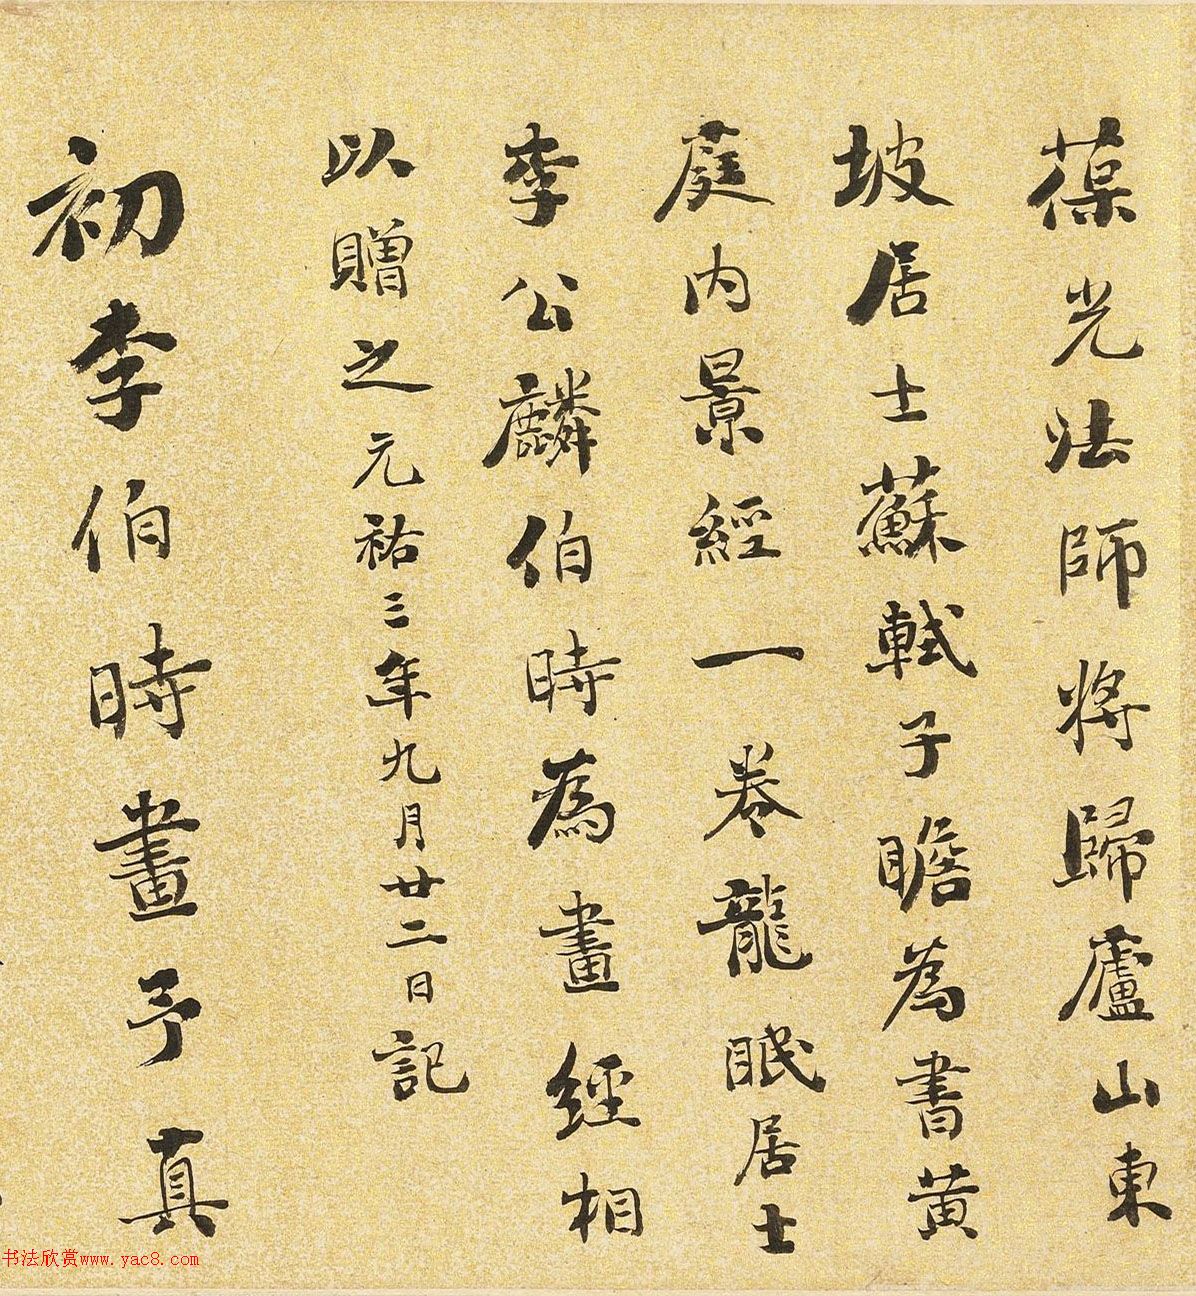 葆光法師將歸廬山東
坡居士蘇軾子瞻為書黃
庭內景經一卷龍眠居士
李公麟伯時為畫經相
以贈之元祐三年九月廿二日記
初李伯時畫予真
书法欣赏www.yac8.com